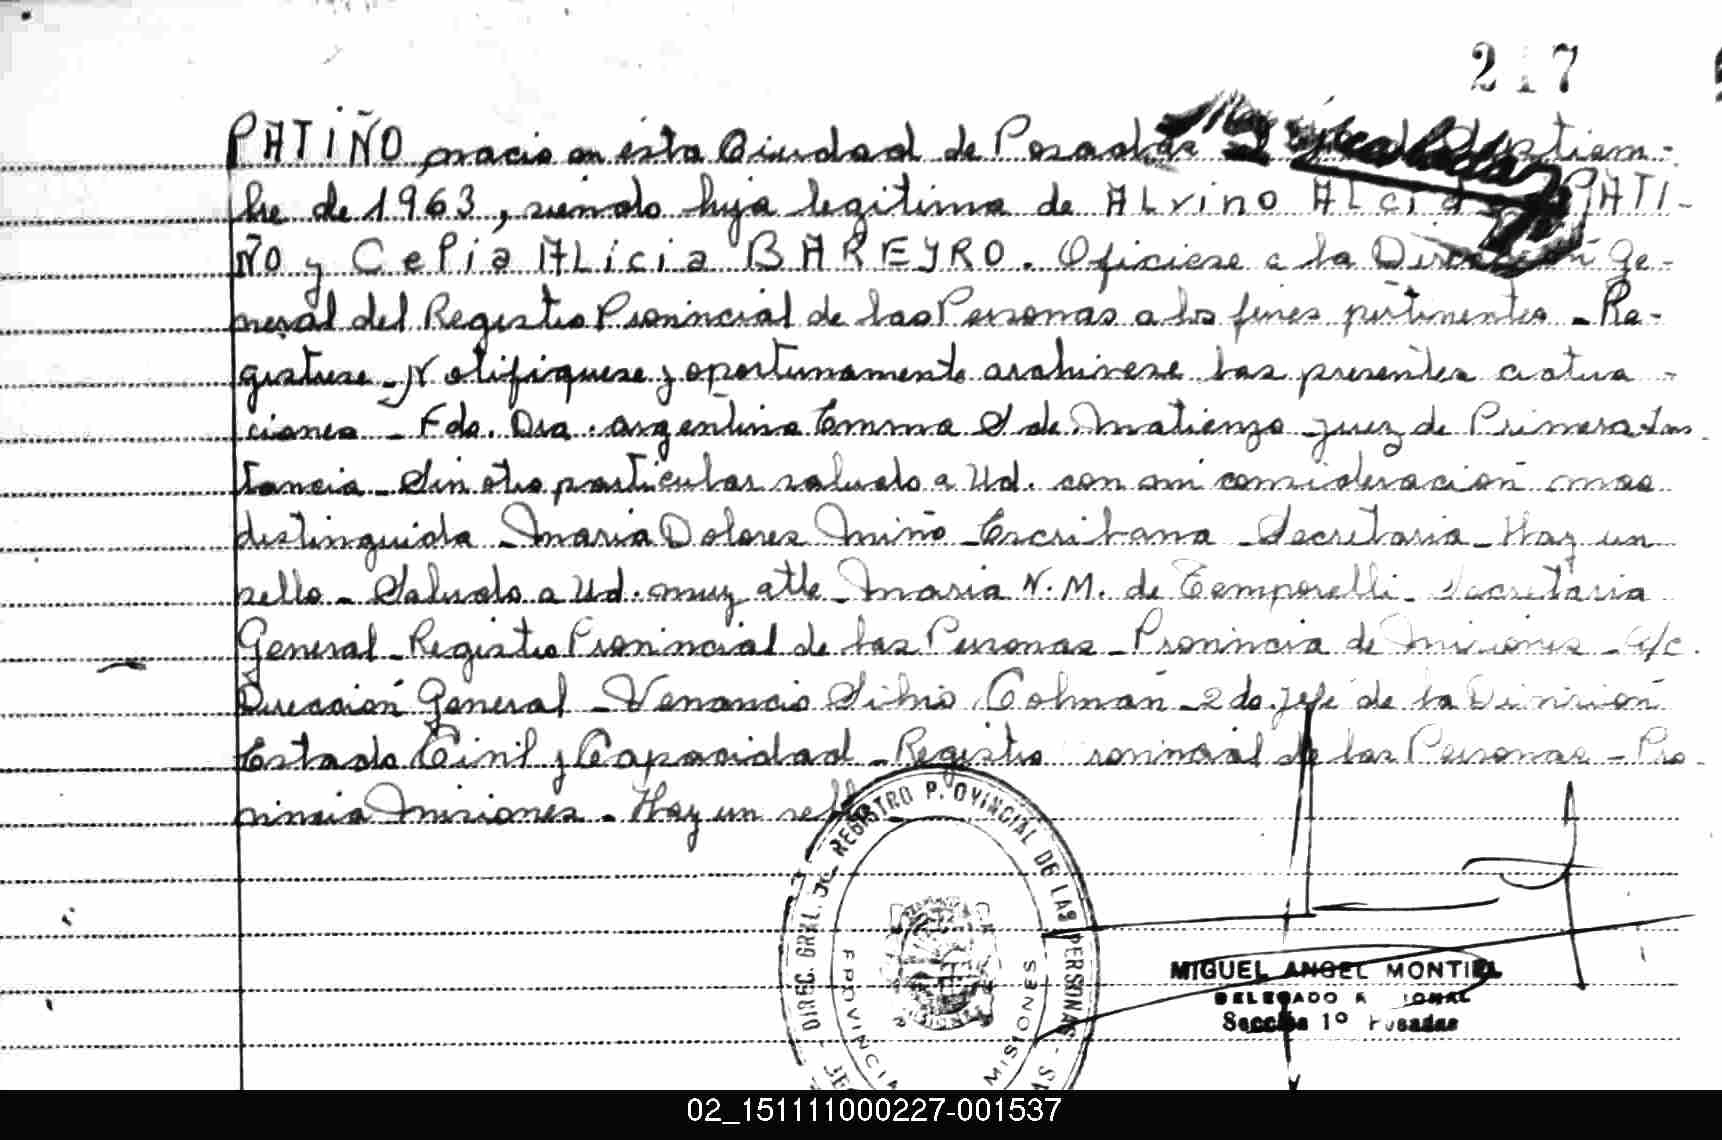 217
PATIÑO, nacio en esta Ciudad de Posadas
bre de 1963, siendo hija legitima de ALvino ALcid PATI-
ÑO y CeLia ALicia BAREYRO. Oficiese a la Dirección Ge-
neral del Registro Provincial de las Personas a los fines pertinentes - Re-
gistrese - Notifiquese y oportunamente archivese las presentes actua-
ciones - Fdo. Dra. Argentina Emma S de Matienzo - Juez de Primera Ins
tancia - Sin otro particular saludo a Ud. con mi consideración mas
distinguida - Maria Dolores Miño - Escribana - Secretaria - Hay un
sello - Saludo a Ud. muy atte - Maria N. M. de Temporelli - Secretaria
General - Registro Provincial de las Personas - Provincia de Misiones - a/c.
Dirección General - Venancio Silvio Colman - 2do. Jefe de la División
Estado Civil y Capacidad - Registro Provincial de las Personas - Pro-
vincia Misiones - Hay un sello
DIREC. GRAL. DEL REGISTRO PROVINCIAL DE LAS PERSONAS -
PROVINCIA MISIONES
MIGUEL ANGEL MONTIEL
DELEGADO
Sección 1º Posadas
02_151111000227-001537